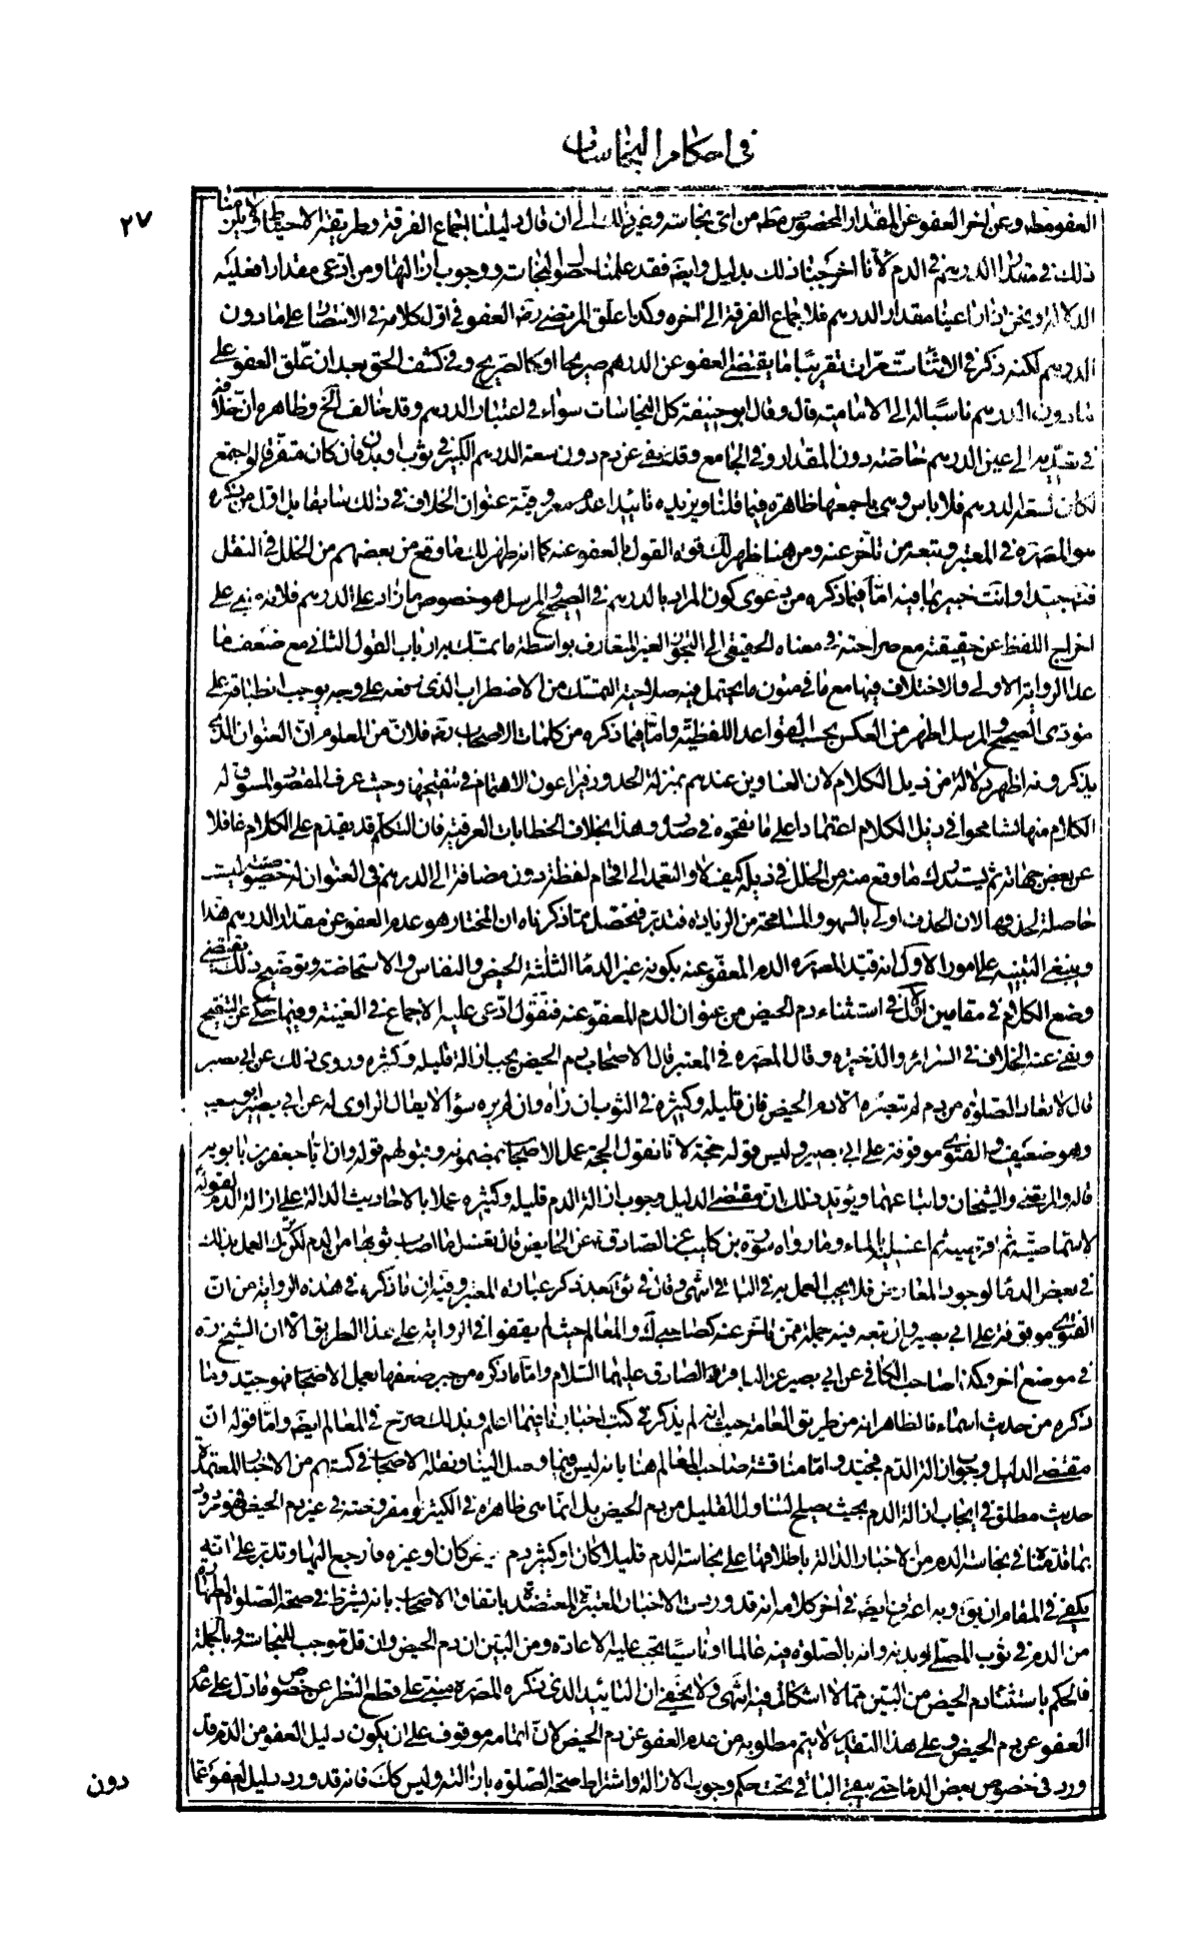 في احكام النجاسات
٢٧
العفو مطه وعن اخر العفو عن المقدار المخصوص مطه من اى نجاسة وغير ذلك الى ان قال دليلنا اجماع الفرقة وطريقة الاحتياط ولا يلزمنا
ذلك في مقدار الدرهم في الدم لأنا اخرجنا ذلك بدليل وايضه فقد علمنا حصول النجاسة ووجوب ازالتها ومن ادعى مقدارا فعليه
الدلالة ونحن اذا راعينا مقدار الدرهم فلاجماع الفرقة الى اخره وكذا علق المرتضى ره العفو في اول كلامه في الانتصار على ما دون
الدرهم لكنه ذكر في الاثناء ست مرات تقريبا ما يقتضى العفو عن الدرهم صريحا او كالصريح وفي كشف الحق بعد ان علق العفو على
ما دون الدرهم ناسبا له الى الامامية قال وقال ابو حنيفة كل النجاسات سواء في اعتبار الدرهم وقد خالف الخ وظاهره ان خلافه
في تعديه الى غير الدرهم خاصة دون المقدار وفي الجامع وقد عفى عن دم دون سعة الدرهم الكبير في ثوب او بدن فان كان متفرقا لو اجتمع
لكان بسعة الدرهم فلا باس وهى باجمعها ظاهرة فيما قلنا ويزيده تاييدا عدم معروفية عنوان الخلاف في ذلك سابقا بل اول من ذكره
هو المصره في المعتبر وتبعه من تاخر عنه ومن هنا ظهر لك قوة القول بالعفو عنه كما انه ظهر لك ما وقع من بعضهم من الخلل في النقل
فتتبع جيدا وانت خبير بما فيه اما فيما ذكره من دعوى كون المراد بالدرهم في الصحيح والمرسل هو خصوص ما زاد على الدرهم فلانه نبيه على
اخراج اللفظ عن حقيقته مع صراحته في معناه الحقيقي الى التجوز الغير المتعارف بواسطة ما تمسك به ارباب القول الثاني مع ضعف ما
عدا الرواية الاولى والاختلاف فيها مع ما في متون ما يحتمل فيه صلاحية التمسك من الاضطراب الذى سمعه على وجه يوجب انطباقه على
مؤدى الصحيح والمرسل اظهر من العكس بحسب القواعد اللفظية واما فيما ذكره من كلمات الاصحاب رضه فلان من المعلوم ان العنوان الذى
يذكرونه اظهر دلالة من ذيل الكلام لان العناوين عندهم بمنزلة الحدود فيراعون الاهتمام في تنقيحها وحيث عرف المقصود المسوق له
الكلام منها تسامحوا في ذيل الكلام اعتمادا على ما نقحوه في صدره وهذا بخلاف الخطابات العرفية فان المتكلم قد يقدم على الكلام غافلا
عن بعض جهاته ثم يستدرك ما وقع منه من الخلل في ذيله كيف لا والتعمد الى اقحام لفظة دون مضافة الى الدرهم في العنوان له خصوصية ليست
حاصلة لحذفها لان الحذف اولى بالسهو والمسامحة من الزيادة فتدبر فتحصل مما ذكرناه ان المختار هو عدم العفو عن مقدار الدرهم هذا
وينبغى التنبيه على امور الاول انه قيد المصره الدم المعفو عنه بكونه غير الدماء الثلثة الحيض والنفاس والاستحاضة وتوضيح ذلك يقتضى
وضع الكلام في مقامين الاول في استثناء دم الحيض من عنوان الدم المعفو عنه فنقول ادعى عليه الاجماع في الغنية وفيما حكى عن التنقيح
ونفى عنه الخلاف في السرائر والذخيرة وقال المصره في المعتبر قال الاصحاب دم الحيض يجب ازالة قليله وكثيره وروى ذلك عن ابى بصير
قال لا تعاد الصلوة من دم لم تبصره الا دم الحيض فان قليله وكثيره في الثوب ان راه وان لم يره سواء لا يقال الراوى له عن ابى بصير ابو سعيد
وهو ضعيف والفتوى موقوفة على ابى بصير وليس قوله حجة لانا نقول الحجة عمل الاصحاب بمضمونه وقبولهم قوله وان ابا جعفر بن بابويه
قاله والمرتضى والشيخان واتباعهما ويؤيد ذلك ان مقتضى الدليل وجوب ازالة الدم قليله وكثيره عملا بالاحاديث الدالة على ازالة الدم لقوله
لاسماء حتيه ثم اقرصيه ثم اغسليه بالماء وما رواه سورة بن كليب عن الصادق عن الحائض قال تغسل ما اصاب ثوبها من الدم لكن ترك العمل بذلك
في بعض الدماء لوجود المعارض فلا يجب العمل به في الباقي انتهى وقال في ئق بعد ذكر عبارة المعتبر وفيه ان ما ذكره في هذه الرواية من ان
الفتوى موقوفة على ابى بصير وان تبعه فيه جملة ممن تاخر عنه كصاحبى ك والمعالم حيث لم يقفوا في الرواية على هذا الطريق الا ان الشيخ ره
في موضع اخر وكذا صاحب الكافي عن ابى بصير عن الباقر او الصادق عليهما السلام واما ما ذكره من جبر ضعفها بعمل الاصحاب فهو جيد وما
ذكره من حديث اسماء فالظاهر انه من طريق العامة حيث انه لم يذكر في كتب اخبارنا فيما اعلم وبذلك صرح في المعالم ايضه واما قوله ان
مقتضى الدليل وجوب ازالة الدم فجيد واما مناقشة صاحب المعالم هنا بانه ليس فيما وصل الينا ونقله الاصحاب في كتبهم من الاخبار المعتمدة
حديث مطلق في ايجاب ازالة الدم بحيث يصلح لتناول القليل من دم الحيض بل انما هى ظاهرة في الكثير او مفروضة في غير دم الحيض فهو مردود
بما قدمنا في نجاسة الدم من الاخبار الدالة باطلاقها على نجاسة الدم قليلا كان او كثير دم حيض كان او غيره فارجع اليها وتدبر على انه
يكفى في المقام ان يق وبه اعترف ايضه في اخر كلامه انه قد وردت الاخبار المعتبرة المعتضدة باتفاق الاصحاب بانه يشترط في صحة الصلوة الطهارة
من الدم في ثوب المصلى او بدنه وانه بالصلوة فيه عالما او ناسيا تجب عليه الاعادة ومن البين ان دم الحيض وان قل موجب للنجاسة وبالجملة
فالحكم باستثناء دم الحيض من البين مما لا اشكال فيه انتهى ولا يخفى ان التاييد الذى ذكره المصره مبنى على قطع النظر عن خصوص ما دل على عدم
العفو عن دم الحيض وعلى هذا التقدير لا يتم مطلوبه من عدم العفو عن دم الحيض لان اتمامه موقوف على ان يكون دليل العفو من الدم قد
ورد في خصوص بعض الدماء حتى يبقى الباقي تحت حكم وجوب الازالة واشتراط صحة الصلوة بازالته وليس كك فانه قد ورد دليل العفو عما
دون